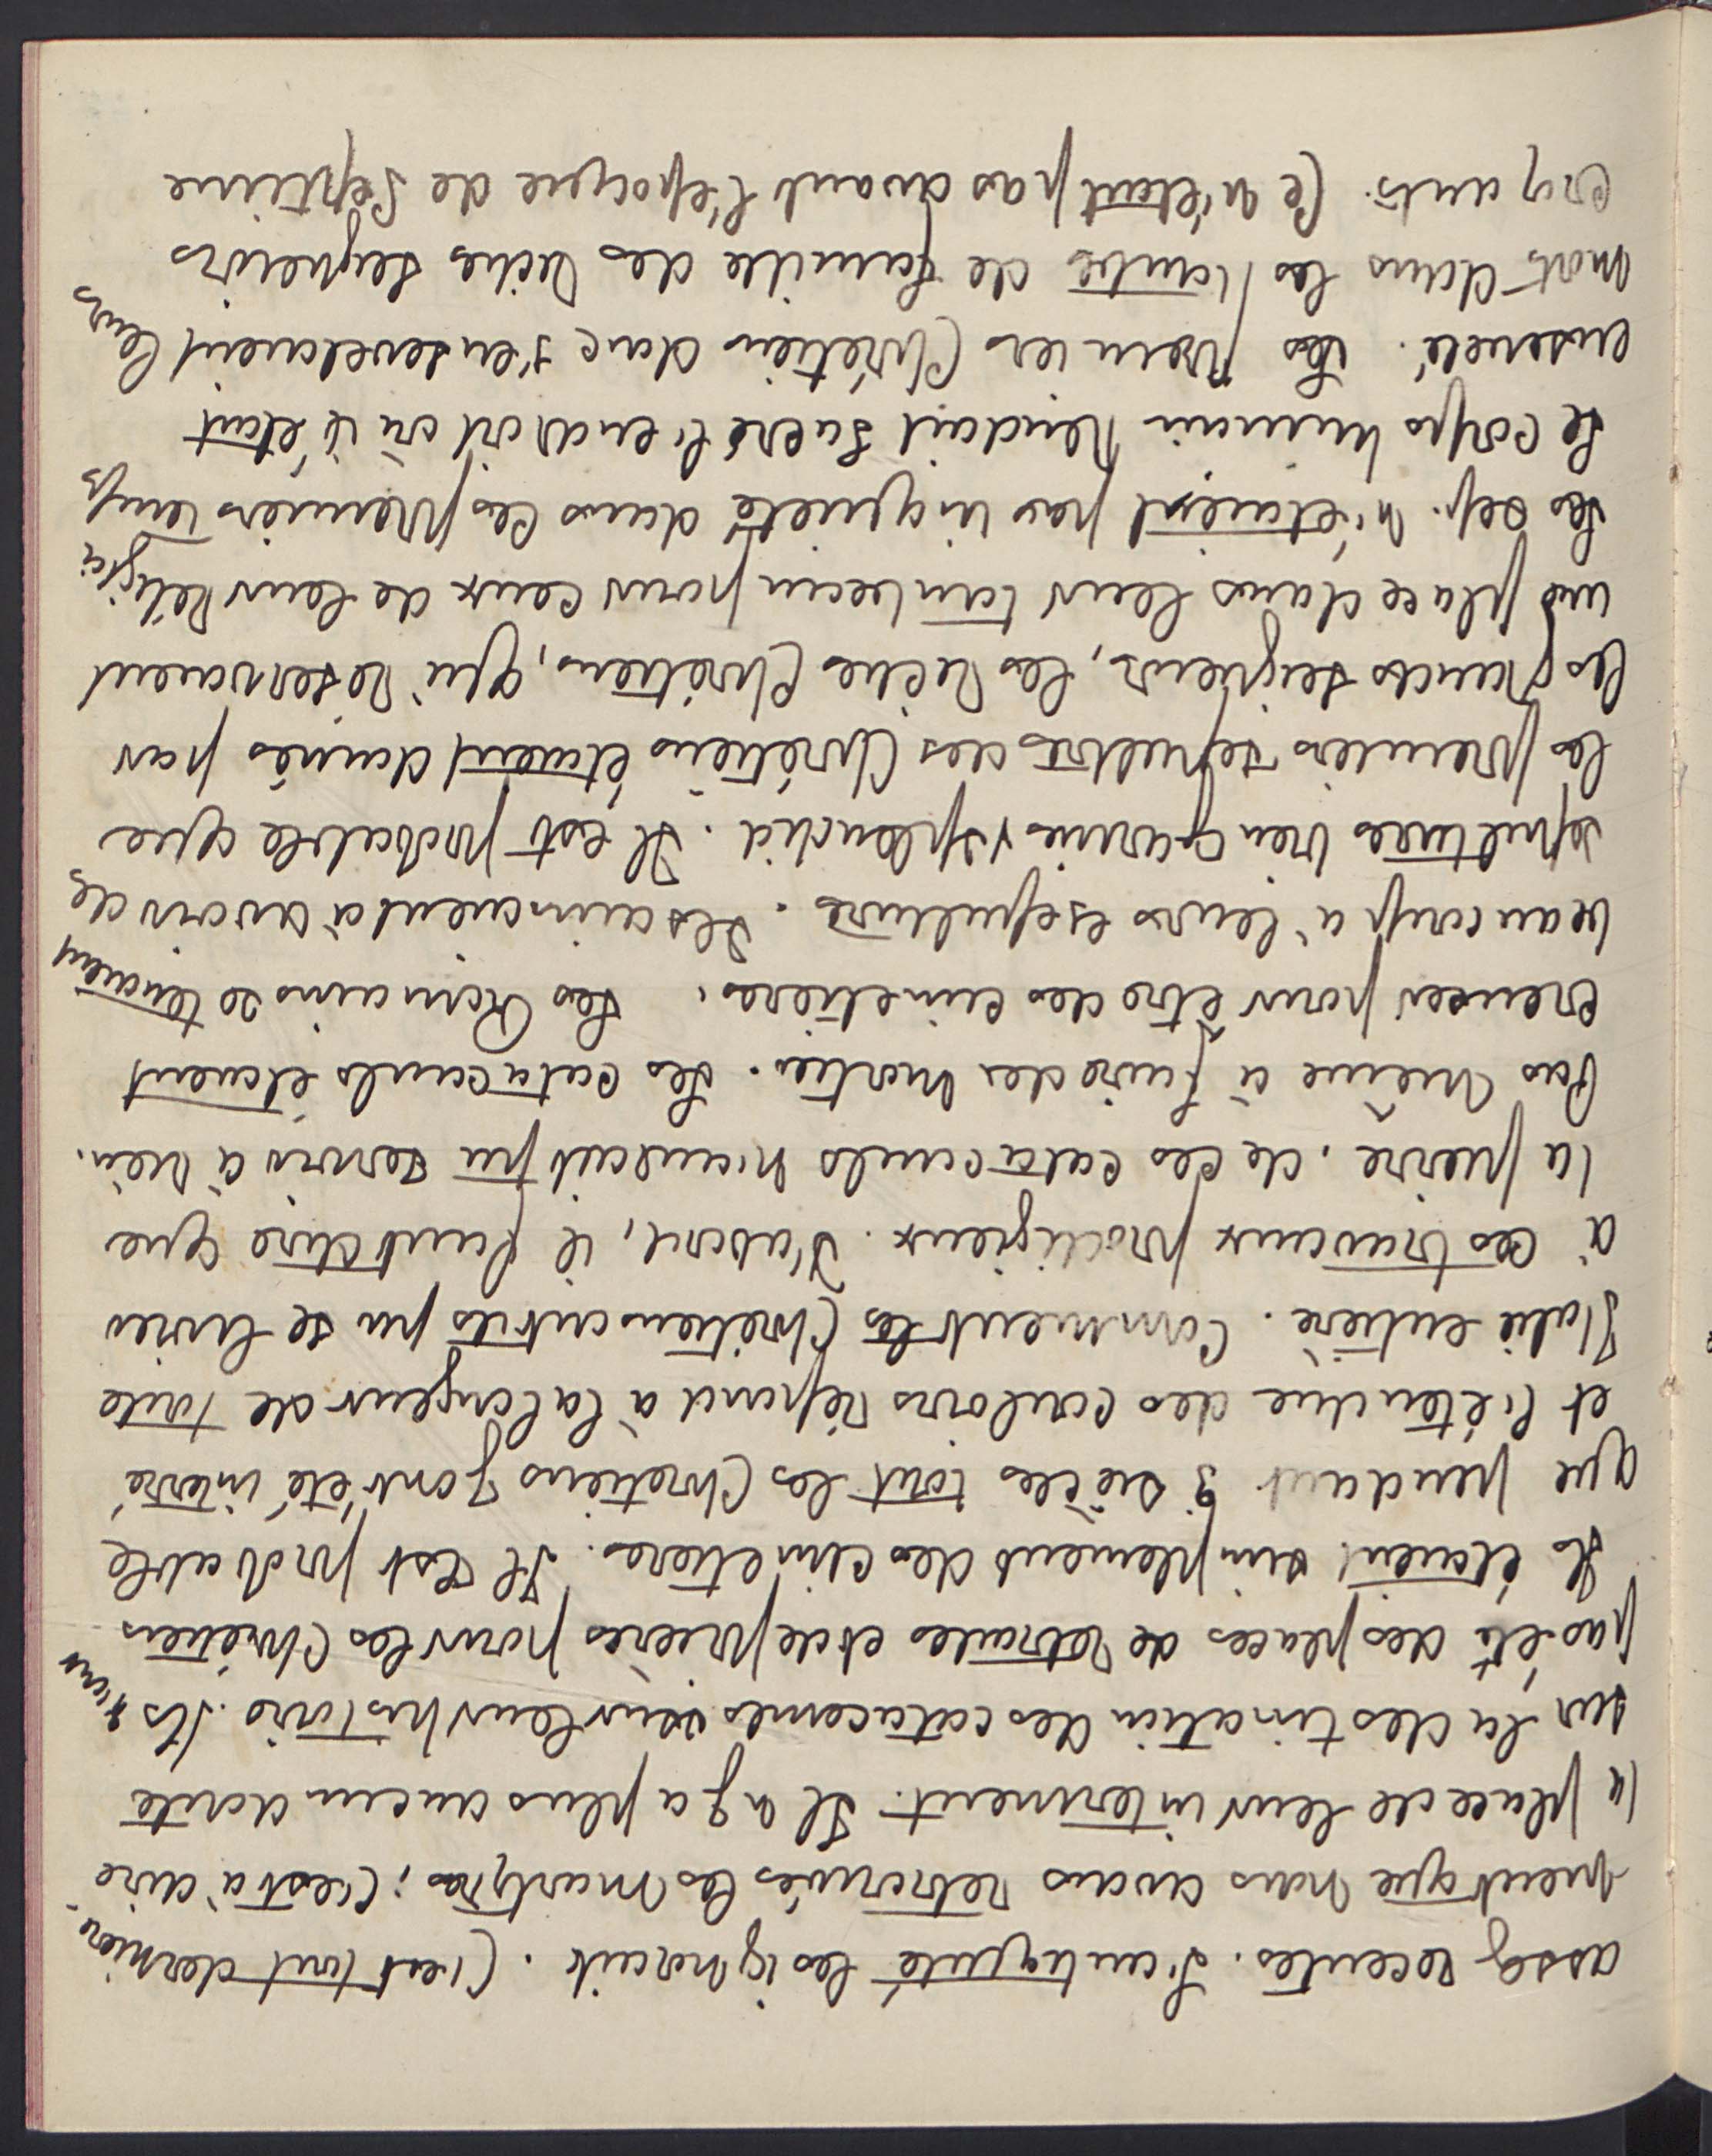 assez récentes. L'antiquité les ignorait. C'est tout dernière-
ment que nous avons retrouvés les martyrs; c'est à dire
la place de leur interment. Il n'y a plus aucun doute
sur la destination des catacombs sur leur histoire. Ils n'ont
pas été des places de retraites et de prières pour les Chrétiens
Ils étaient simplement des cimetières. Il est probable
que pendant 3 siècles tout les Chretiens y ont été interré
et l'étendue des couloirs répond à la longeur de toute
Italie entière. Comment les Chretiens ont ils pu se livrer
à ces travaux prodigieux. D'abord, il faut dire que
la pierre, de ces catacombs n'aurait pu servir à rien.
Pas même à faire des mortier. Les catacombs étaient
creuser pour être des cimetières. Les Romains se tenaient
beaucoup à leurs sepulture. Ils aimaient à avoir de
sepultures bien garnies splendid. Il est probable que
les premiers sepultre des Chrétiens étaient donnés par
les grands seigneurs, les riche Chrétiens, qui réservaient
une place dans leur tombeau pour ceux de leur Religio.
Les sep. n'étaient pas inquieté dans les premiers temps
Le corps humain rendait sacré l'endroit où il était
enseveli. Les premiers Chrétiens donc s'ensevelaient leurs
mort dans les tombe de famille des riches seigneurs
croyants. Ce n'était pas avant l'epoque de Septime